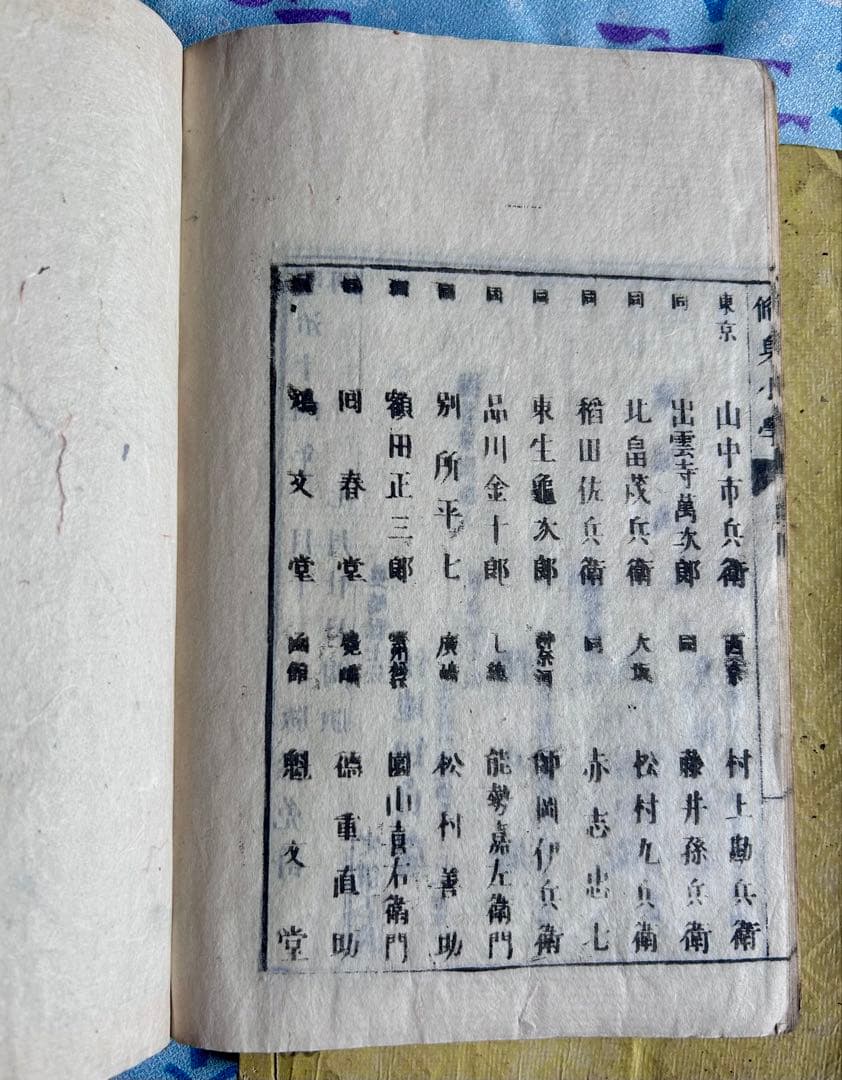 東京 山中市兵衛 西京 村上勘兵衛
同 出雲寺萬次郎 同 藤井孫兵衛
同 北畠茂兵衛 大坂 松村九兵衛
同 稻田佐兵衛 同 赤志忠七
同 東生龜次郎 神奈河 師岡伊兵衛
同 品川金十郎 能勢嘉左衛門
同 別所平七 廣嶋 松村善助
同 額田正三郎 園山喜右衛門
同 同春堂 德重直助
同 鴻文堂 函館 魁文堂
修身小學